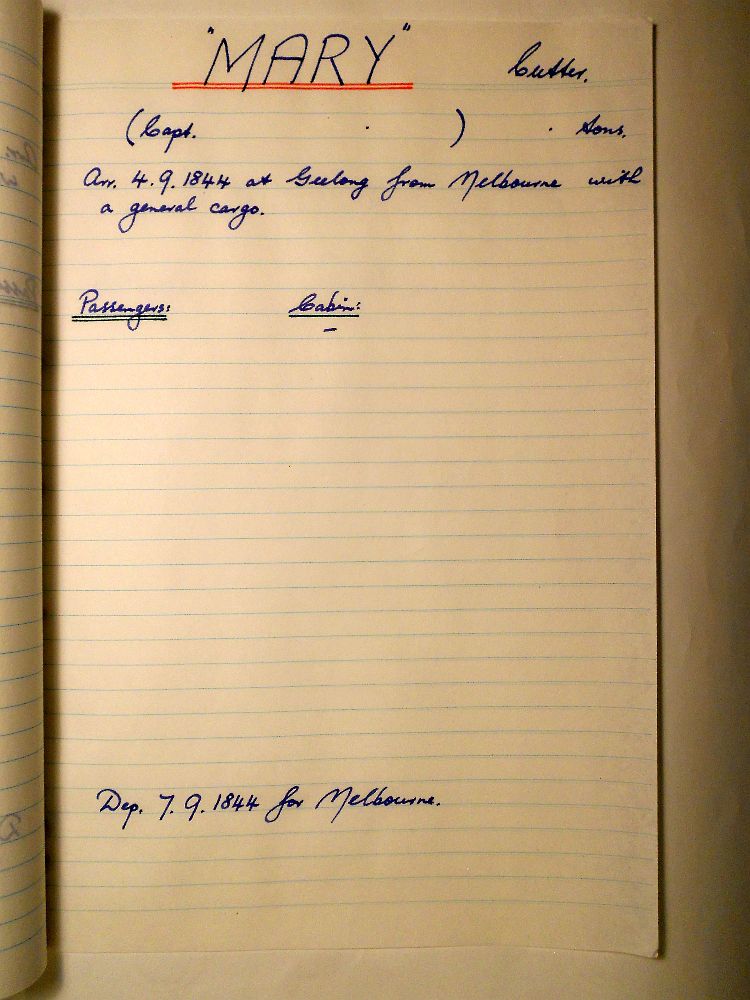 "MARY" Cutter.
(Capt. . ) . Tons.
Arr. 4.9.1844 at Geelong from Melbourne with
a general cargo.
Passengers: Cabin:
–
Dep. 7.9.1844 for Melbourne.